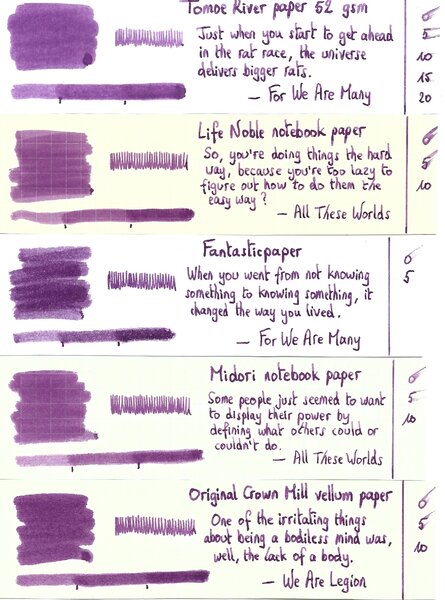 Tomoe River paper 52 gsm
Just when you start to get ahead
in the rat race, the universe
delivers bigger rats.
— For We Are Many
0
5
10
15
20
Life Noble notebook paper
So, you're doing things the hard
way, because you're too lazy to
figure out how to do them the
easy way?
— All These Worlds
0
5
10
Fantasticpaper
When you went from not knowing
something to knowing something, it
changed the way you lived.
— For We Are Many
0
5
Midori notebook paper
Some people just seemed to want
to display their power by
defining what others could or
couldn't do.
— All These Worlds
0
5
10
Original Crown Mill vellum paper
One of the irritating things
about being a bodiless mind was,
well, the lack of a body.
— We Are Legion
0
5
10